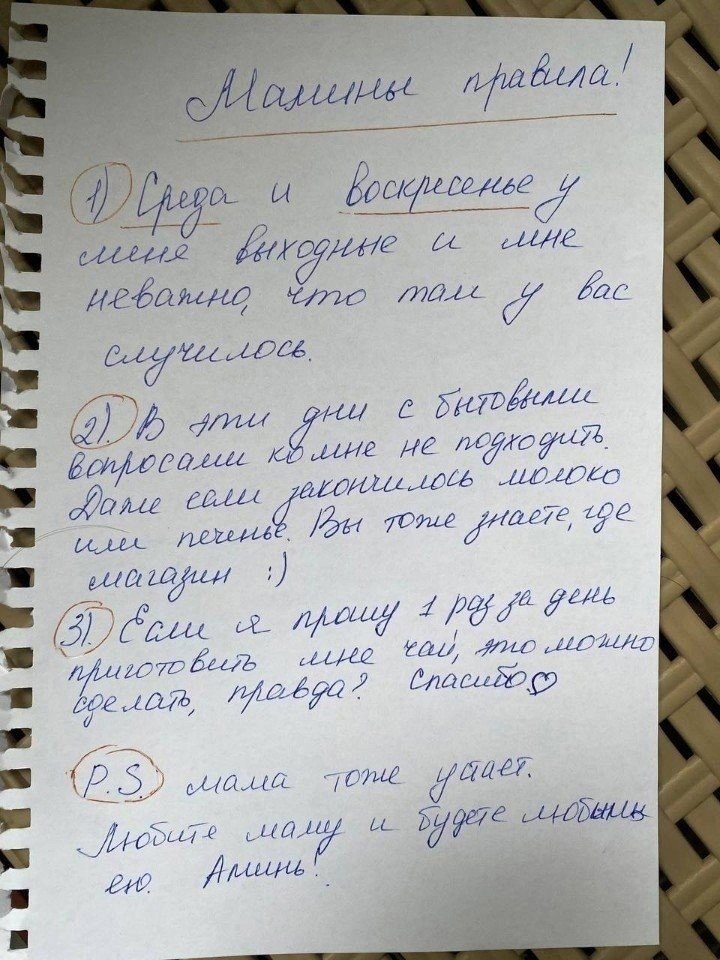 Мамины правила!
1) Среда и воскресенье у
меня выходные и мне
неважно, что там у вас
случилось.
2). В эти дни с бытовыми
вопросами ко мне не подходить.
Даже если закончилось молоко
или печенье. Вы тоже знаете, где
магазин :)
3). Если я прошу 1 раз за день
приготовить мне чай, это можно
сделать, правда? Спасибо♡
P.S. мама тоже устает.
Любите маму и будете любимы
ею. Аминь!